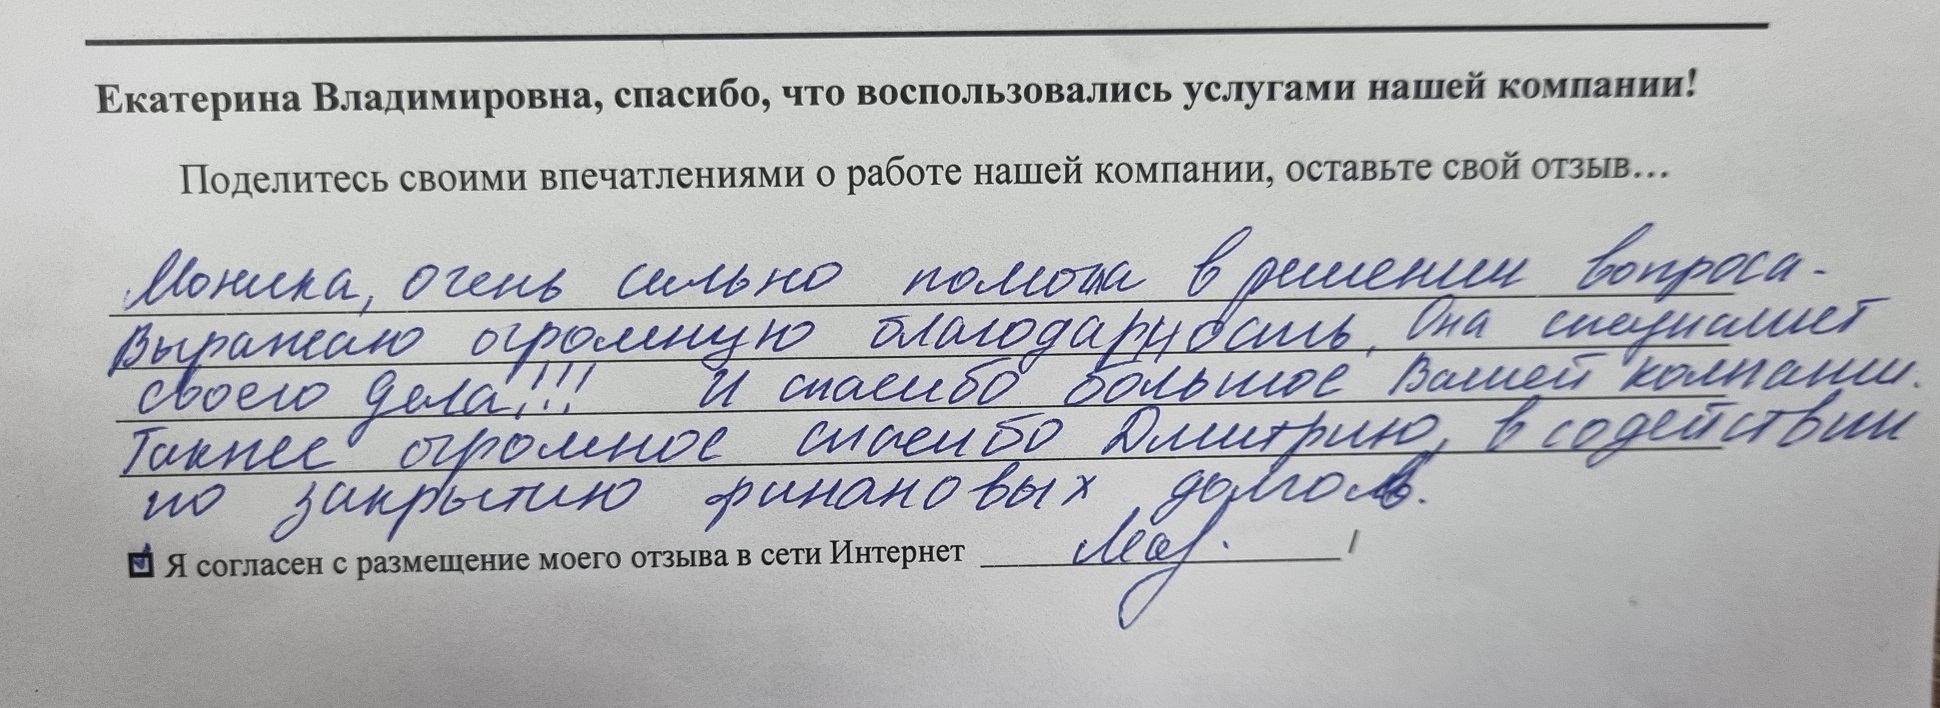 Екатерина Владимировна, спасибо, что воспользовались услугами нашей компании!
Поделитесь своими впечатлениями о работе нашей компании, оставьте свой отзыв...
Моника, очень сильно помогла в решении вопроса.
Выражаю огромную благодарность, Она специалист
своего дела!!! И спасибо большое Вашей компании.
Также огромное спасибо Дмитрию, в содействии
по закрытию финановых долгов.
Я согласен с размещение моего отзыва в сети Интернет